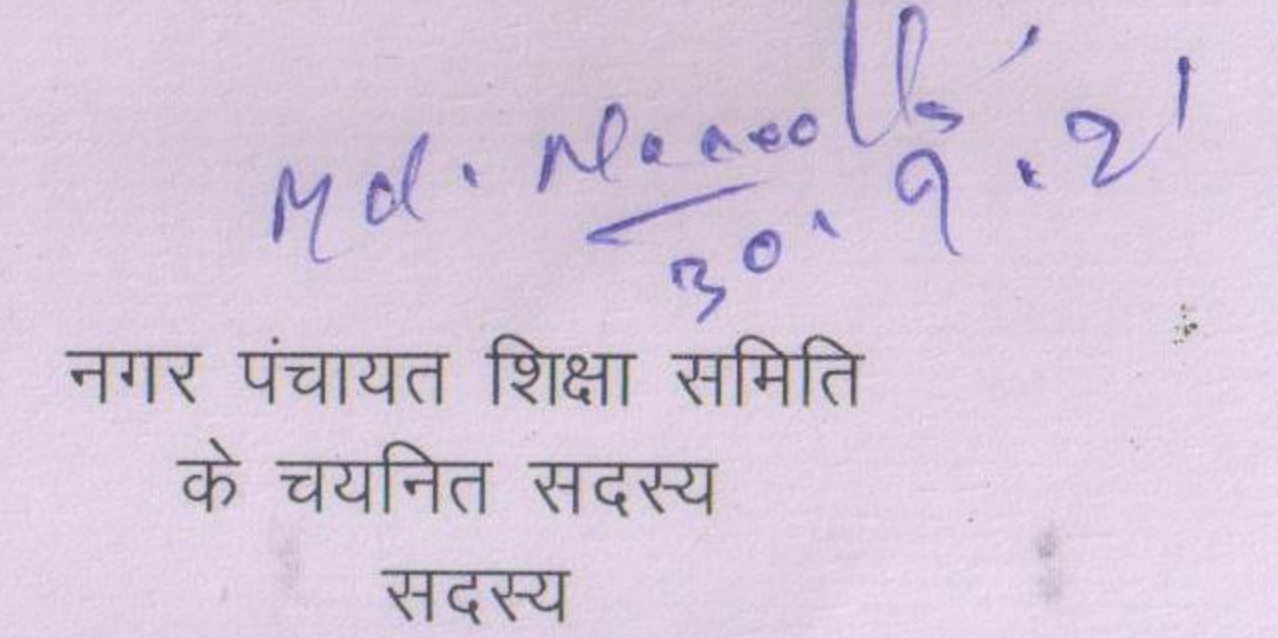 Md.
30.9.21
नगर पंचायत शिक्षा समिति
के चयनित सदस्य
सदस्य